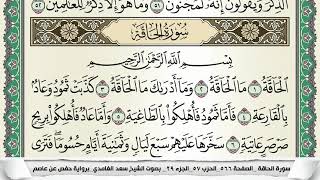 الذِّكْرَ وَيَقُولُونَ إِنَّهُ لَمَجْنُونٌ ٥١ وَمَا هُوَ إِلَّا ذِكْرٌ لِّلْعَالَمِينَ ٥٢
سُورَةُ الحَاقَّةِ
بِسْمِ اللَّهِ الرَّحْمَٰنِ الرَّحِيمِ
الْحَاقَّةُ ١ مَا الْحَاقَّةُ ٢ وَمَا أَدْرَاكَ مَا الْحَاقَّةُ ٣ كَذَّبَتْ ثَمُودُ وَعَادٌ
بِالْقَارِعَةِ ٤ فَأَمَّا ثَمُودُ فَأُهْلِكُوا بِالطَّاغِيَةِ ٥ وَأَمَّا عَادٌ فَأُهْلِكُوا بِرِيحٍ
صَرْصَرٍ عَاتِيَةٍ ٦ سَخَّرَهَا عَلَيْهِمْ سَبْعَ لَيَالٍ وَثَمَانِيَةَ أَيَّامٍ حُسُومًا فَتَرَى
سورة الحاقة _ الصفحة ٥٦٦ _ الحزب ٥٧ _ الجزء ٢٩ _ بصوت الشيخ سعد الغامدي برواية حفص عن عاصم